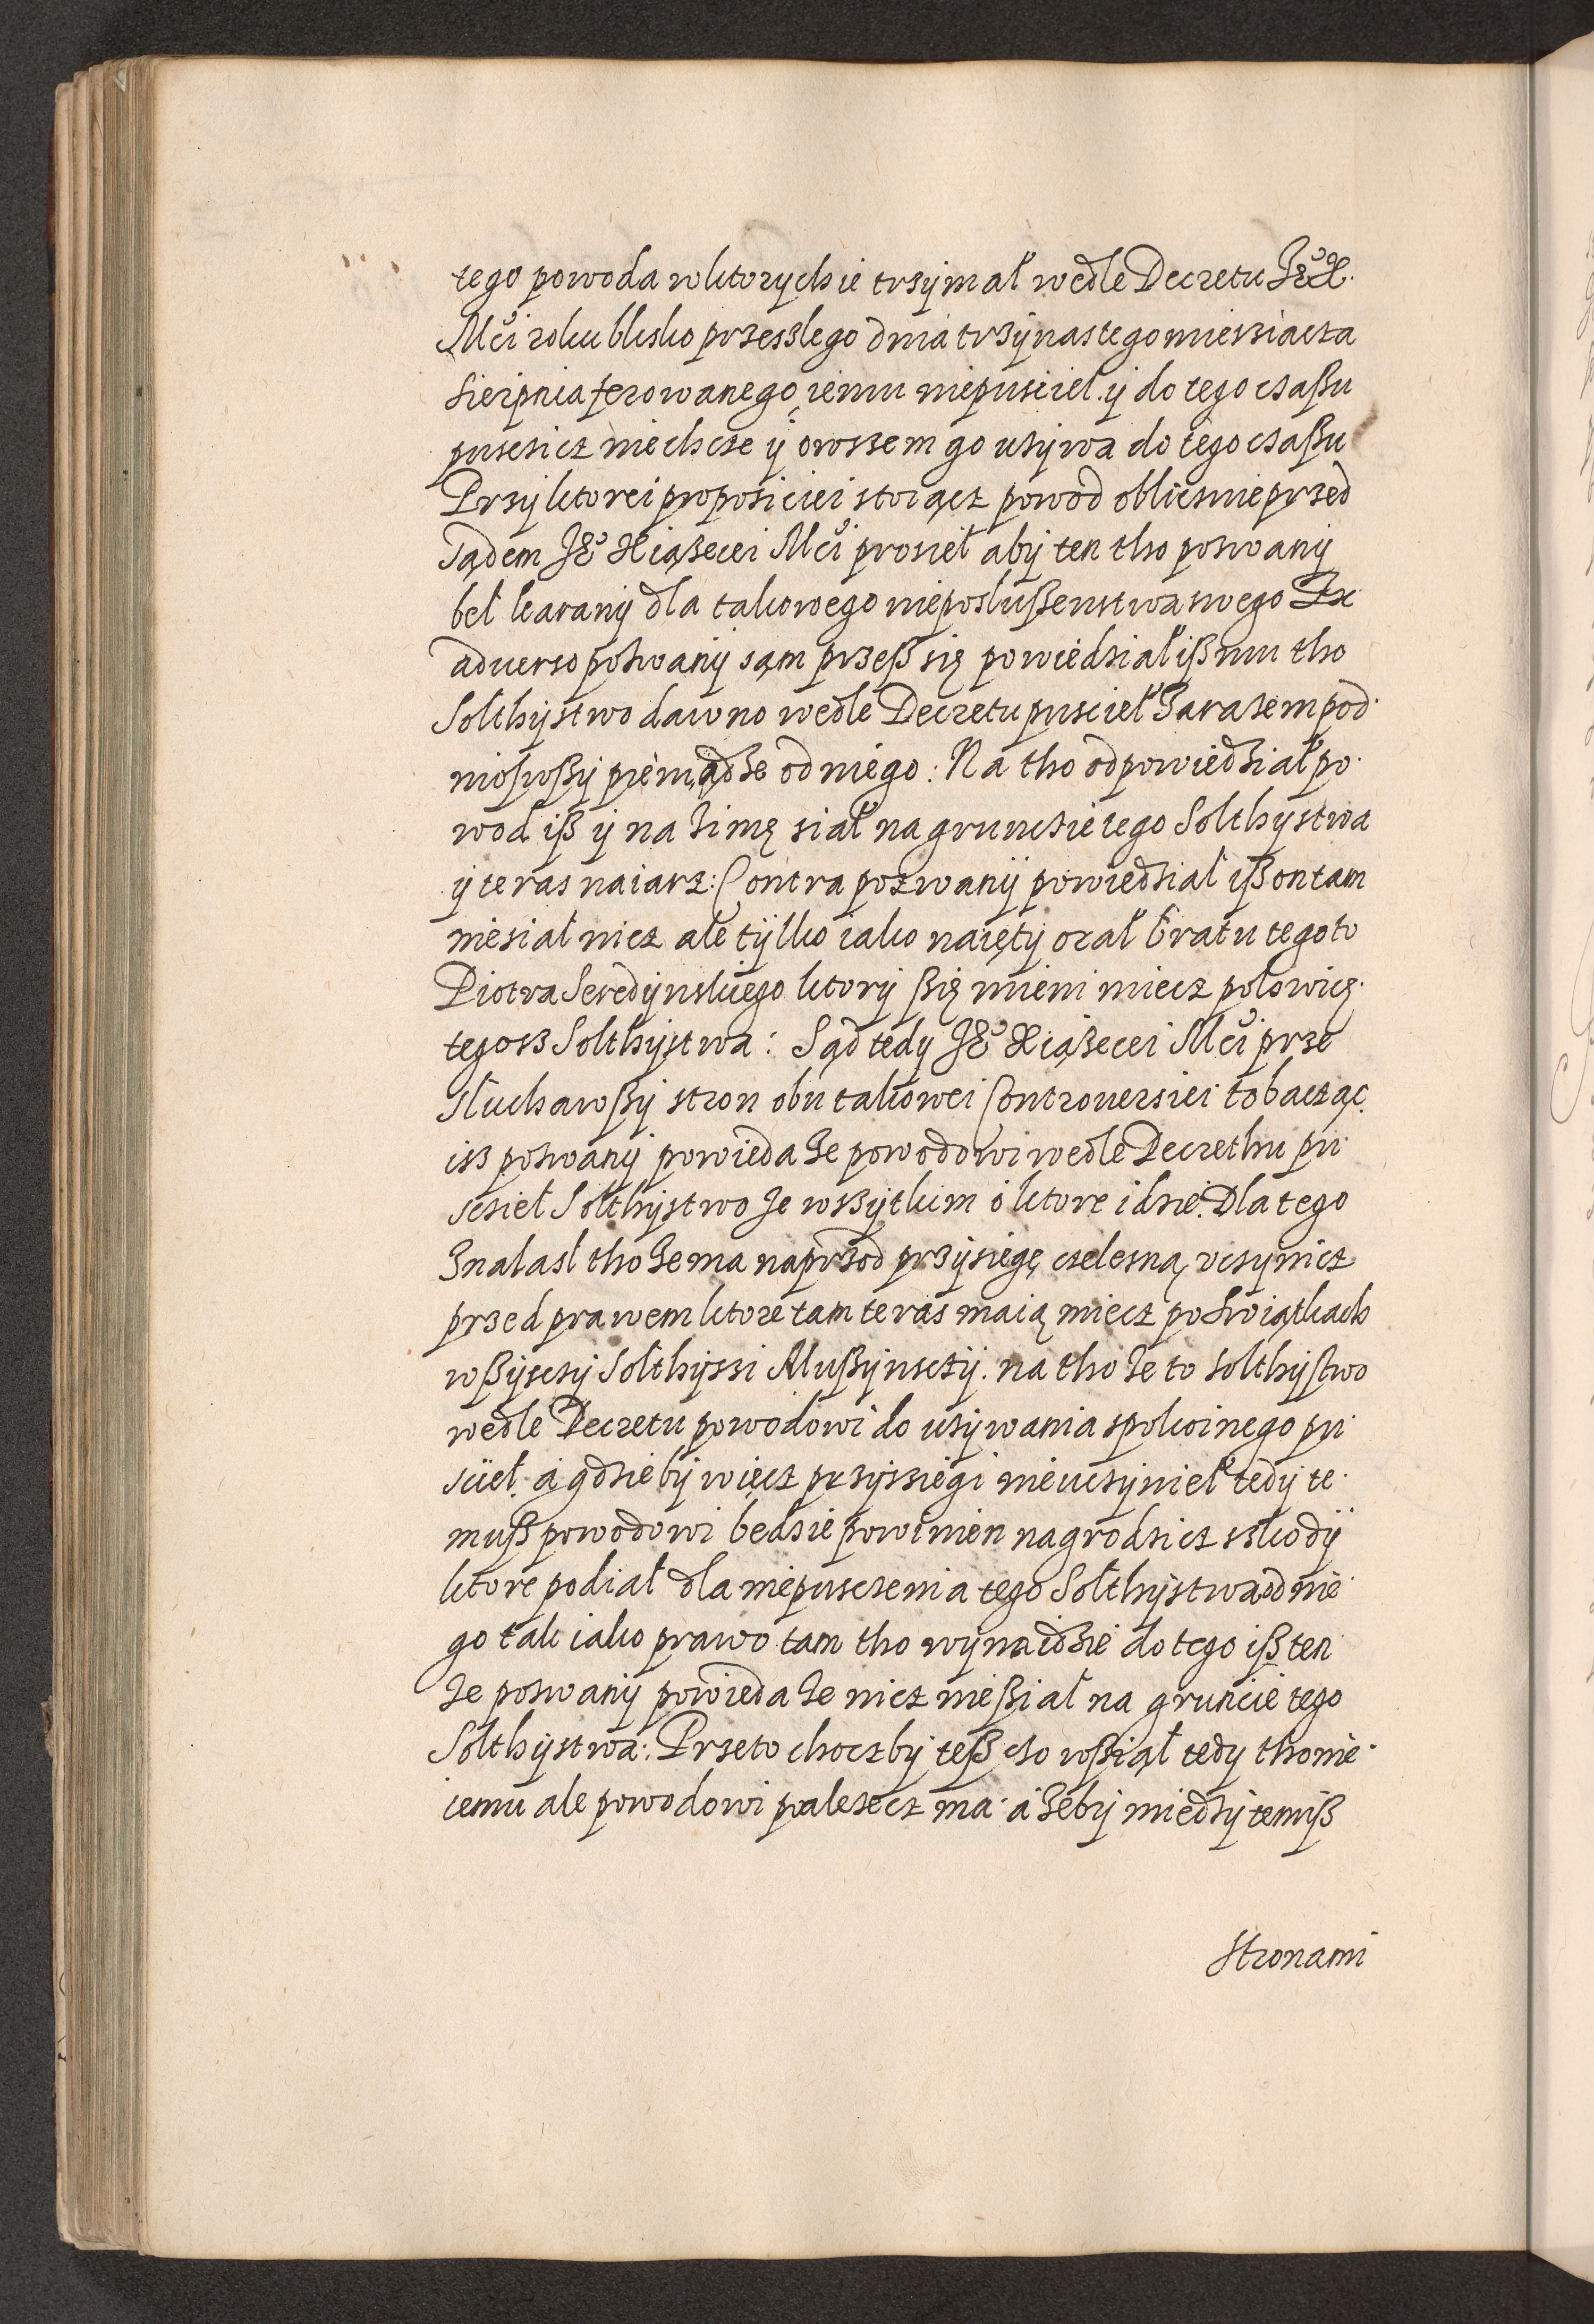 tego powoda w ktorych ie trzymał wedle Decretu Je° X.
Mći roku blisko przeszlego dnia trzynastego miesziacza
Sierpnia ferowanego iemu niepusciel. y do tego czaßu
pusczicz niechcze y owszem go uzywa do tego czaßu
Przy ktorei proposiciei stoiącz powod obliczmie przed
Sądem Je° Xiążecei Mći prosieł aby ten tho pozwany
beł karany dla takowego nieposlußenstwa swego Ex
aduerso pozwany sąm przeß się powiedział iß mu tho
Solthystwo dawno wedle Decretu pusciel zarazem pod
niozwßy pieniądze od niego: Na tho odpowiedział po
wod iß y na zimę siał na grunczie tego Solthystwa
y teras na iarz: Contra pozwany powiedzial iß on tam
niesiał nicz ale tylko iako naięty orał bratu tegoto
Piotra Seredynskiego ktory ßię mieni miecz polowicę
tegosz Solthystwa: Sąd tedy Je° Xiążecei Mći prze
sluchawßy stron obu takowei Controuersiei tobacząc
isz pozwany powieda ze powodowi wedle Decrethu pu
scziel Solthystwo ze wszytkim o ktore idzie. Dla tego
znalasl tho ze ma naprzod przysiegę czelesną vczynicz
przed prawem ktore tam teras maią miecz po Swiątkach
wßysczy Solthyszi Mußynsczy. na tho ze to Solthystwo
wedle Decretu powodowi do uzywania spokoinego pu
sciel. a gdzieby więcz przysziegi nieuczynieł tedy te
muß powodowi będzie powinien nagrodzicz szkody
ktore podiał dla niepusczenia tego Solthystwa od nie
go tak iako prawo tam tho wynaidzie do tego iß ten
ze pozwany powieda ze nicz nießiał na gruncie tego
Solthystwa: Przeto choczby teß czo wßiał tedy tho nie
iemu ale powodowi nalezecz ma. a zeby miedzy temyß
Stronami